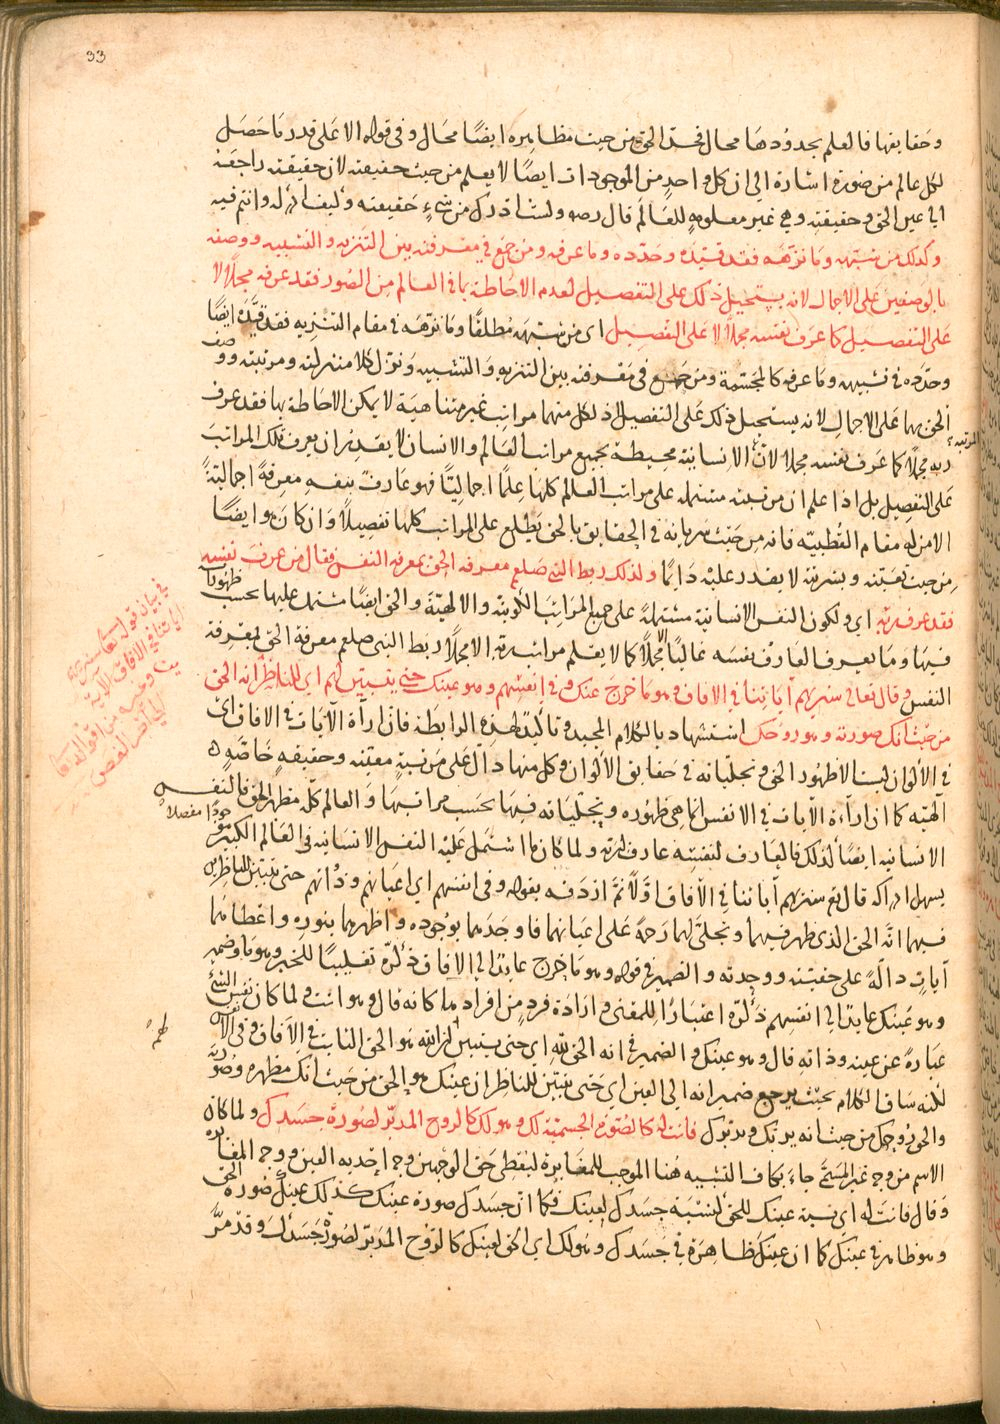 33
وحقايقها فالعلم بحدودها محال فحد الحق من حيث مظاهره ايضا محال وفى قوله الا على قدر ما حصل
لكل عالم من صورة اشارة الى ان كل واحد من الموجودات ايضا لا يعلم من حيث حقيقته لان حقيقته راجعة
الى عين الحق وحقيقته وهى غير معلومة للعالم قال رضه ولست ادرك من شىء حقيقته وكيف ادركه وانتم فيه
وكذلك من شبهه وما نزهه فقد قيده وحدده وما عرفه ومن جمع فى معرفته بين التنزيه والتشبيه ووصفه
بالوصفين على الاجمال لانه يستحيل ذلك على التفصيل لعدم الاحاطة بما فى العالم من الصور فقد عرفه مجملا لا
على التفصيل كما عرف نفسه مجملا لا على التفصيل اى من شبهه مطلقا وما نزهه فى مقام التنزيه فقد قيده ايضا
وحدده فى تشبيهه وما عرفه كالمجسمة ومن جمع فى معرفته بين التنزيه والتشبيه ونزل كلا منزلته ومرتبته ووصف
الحق بهما على الاجمال لانه يستحيل ذلك على التفصيل اذ لكل منهما مراتب غير متناهية لا يمكن الاحاطة بها فقد عرف
ربه مجملا كما عرف نفسه مجملا لان الانسانية محيطة بجميع مراتب العالم والانسان لا يقدر ان يعرف تلك المراتب
المرتبة
على التفصيل بل اذا علم ان مرتبته مشتملة على مراتب العالم كلها علما اجماليا فهو عارف بنفسه معرفة اجمالية
الا من له مقام القطبية فانه من حيث سريانه فى الحقايق بالحق يطلع على المراتب كلها تفصيلا وان كان هو ايضا
من حيث تعينه وبشريته لا يقدر عليه دايما ولذلك ربط النبى صلعم معرفة الحق بمعرفة النفس فقال من عرف نفسه
فقد عرف ربه اى ولكون النفس الانسانية مشتملة على جميع المراتب الكونية والالهية والحق ايضا مشتمل عليها بحسب ظهوراته
فيها وما يعرف العارف نفسه غالبا الا مجملا كما لا يعلم مراتب ربه الا مجملا ربط النبى صلعم معرفة الحق بمعرفة
النفس وقال تعالى سنريهم آياتنا فى الافاق وهو ما خرج عنك وفى انفسهم وهو عينك حتى يتبين لهم اى للناظر انه الحق
من حيث انك صورته وهو روحك استشهاد بالكلام المجيد وتأكيد لهذه الرابطة فان اراة الآيات فى الافاق اى
فى الأكوان ليست الا ظهور الحق وتجلياته فى حقايق الأكوان وكل منها دال على مرتبة معينة وحقيقة خاصة
الهية كما ان اراءة الآيات فى الانفس انما هى ظهوره وتجلياته فيها بحسب مراتبها والعالم كله مظهر الحق فالنفس
الانسانية ايضا كذلك فالعارف لنفسه عارف لربه ولما كان ما اشتمل عليه النفس الانسانية فى العالم الكبير موجودا مفصلا
يسهل ادراكه قال تع سنريهم آياتنا فى الآفاق اولا ثم اردفه بقوله وفى انفسهم اى اعيانهم وذواتهم حتى يتبين للناظرين
فيهما انه الحق الذى ظهر فيهما وتجلى لهما رحمة على اعيانهما فاوجدهما بوجوده واظهرهما بنوره واعطاهما
آيات دالة على حقيته ووحدته والضمير فى قوله وهو ما خرج عايد الى الافاق ذكره تغليبا للخبر وهو ما وضمير
وهو عينك عايد الى انفسهم ذكره اعتبارا للمعنى وارادة فرد من افراد ما كانه قال وهو انت ولما كان نفس الشئ
عبارة عن عينه وذاته قال وهو عينك والضمير فى انه الحق لله اى حتى يتبين لهم ان الله هو الحق الثابت فى الآفاق وفى الانفس
لكنه ساق الكلام بحيث يرجع ضمير انه الى العين اى حتى يتبين للناظر ان عينك هو الحق من حيث انك مظهره وصورته
والحق روحك من حيث انه يربك ويدبرك فانت له كالصورة الجسمية لك وهو لك كالروح المدبر لصورة جسدك ولما كان
الاسم من وجه غير المسمى جاء بكاف التشبيه هنا الموجب للمغايرة ليعطى حق الوجهين وجه احدية العين ووجه المغايرة
وقال فانت له اى نسبة عينك للحق كنسبة جسدك لعينك فكما ان جسدك صورة عينك كذلك عينك صورة الحق
وهو ظاهر فى عينك كما ان عينك ظاهرة فى جسدك وهو لك اى الحق لعينك كالروح المدبر لصورة جسدك وقد مر
فى بيان قوله تعالى سنريهم
آياتنا فى الافاق الآية